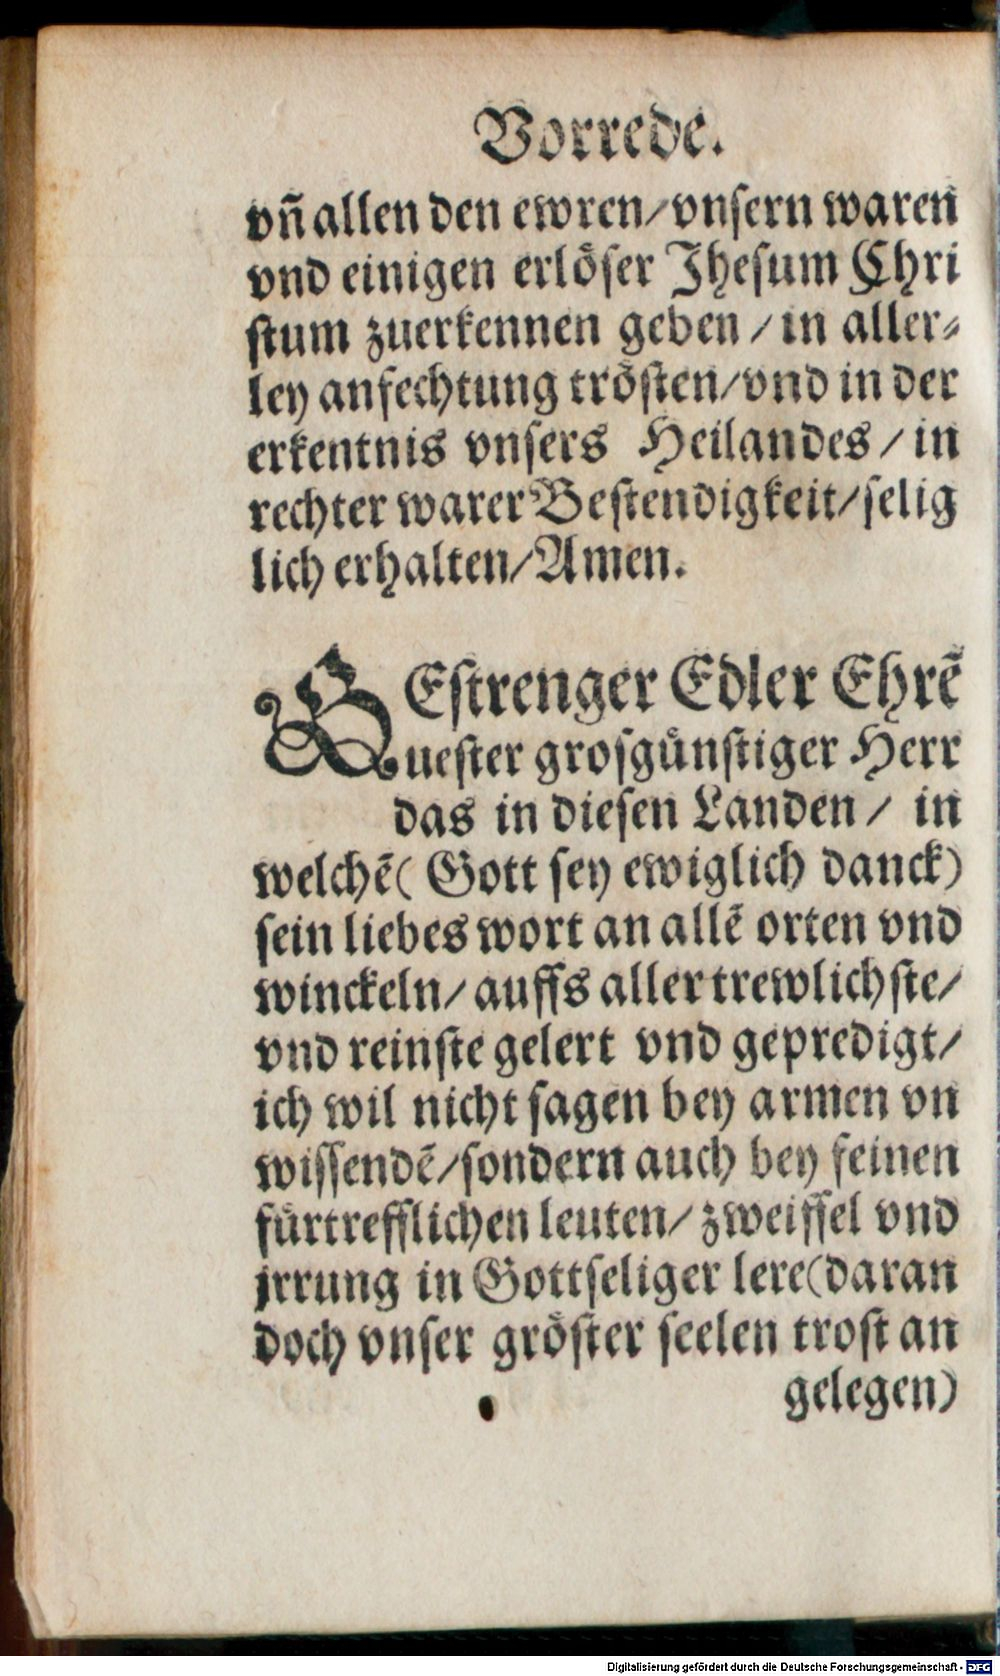 Vorrede.
vñ allen den ewren/vnsern waren
vnd einigen erlöser Jhesum Chri
stum zuerkennen geben / in aller⸗
ley anfechtung trösten/vnd in der
erkentnis vnsers Heilandes / in
rechter warer Bestendigkeit/selig
lich erhalten/Amen.
GEstrenger Edler Ehrẽ
uester grosgünstiger Herr
das in diesen Landen / in
welchẽ( Gott sey ewiglich danck)
sein liebes wort an allẽ orten vnd
winckeln/auffs aller trewlichste/
vnd reinste gelert vnd gepredigt/
ich wil nicht sagen bey armen vn
wissendẽ/sondern auch bey feinen
fürtrefflichen leuten/zweiffel vnd
jrrung in Gottseliger lere(daran
doch vnser gröster seelen trost an
gelegen)
Digitalisierung gefördert durch die Deutsche Forschungsgemeinschaft - DFG